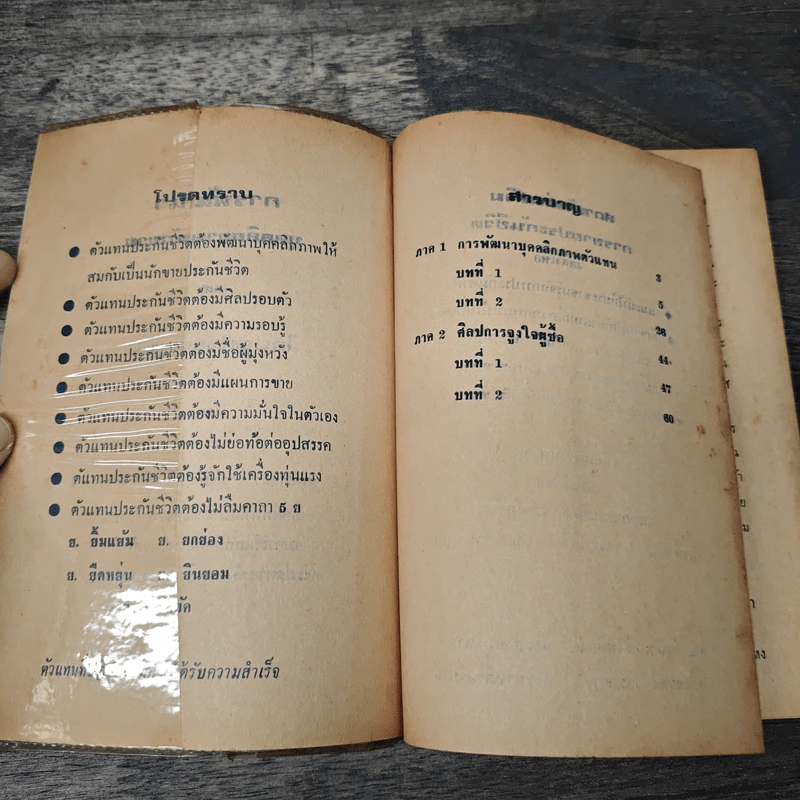 โปรดทราบ
● ตัวแทนประกันชีวิตต้องพัฒนาบุคคลิกภาพให้
สมกับเป็นนักขายประกันชีวิต
● ตัวแทนประกันชีวิตต้องมีศิลปรอบตัว
● ตัวแทนประกันชีวิตต้องมีความรอบรู้
● ตัวแทนประกันชีวิตต้องมีชื่อผู้มุ่งหวัง
● ตัวแทนประกันชีวิตต้องมีแผนการขาย
● ตัวแทนประกันชีวิตต้องมีความมั่นใจในตัวเอง
● ตัวแทนประกันชีวิตต้องไม่ย่อท้อต่ออุปสรรค
● ตัวแทนประกันชีวิตต้องรู้จักใช้เครื่องทุ่นแรง
● ตัวแทนประกันชีวิตต้องไม่ลืมคาถา 5 ย
ย. ยิ้มแย้ม ย. ยกย่อง
ย. ยืดหยุ่น ยินยอม
ตัวแทน ได้รับความสำเร็จ
สารบาญ
ภาค 1 การพัฒนาบุคคลิกภาพตัวแทน 3
บทที่ 1 5
บทที่ 2 26
ภาค 2 ศิลปการจูงใจผู้ซื้อ 44
บทที่ 1 47
บทที่ 2 60